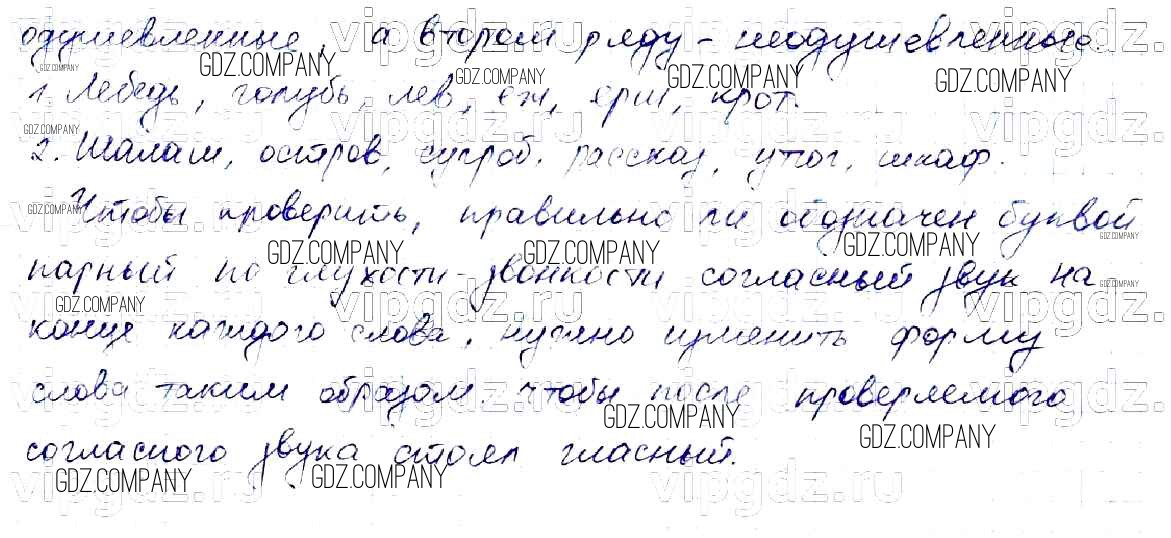 одушевленные, а втором ряду - неодушевленные.
1. Лебедь, голубь, лев, еж, ерш, крот.
2. Шалаш, остров, сугроб, рассказ, утюг, шкаф.
Чтобы проверить, правильно ли обозначен буквой
парный по глухости-звонкости согласный звук на
конце каждого слова, нужно изменить форму
слова таким образом, чтобы после проверяемого
согласного звука стоял гласный.
GDZ.COMPANY
vipgdz.ru